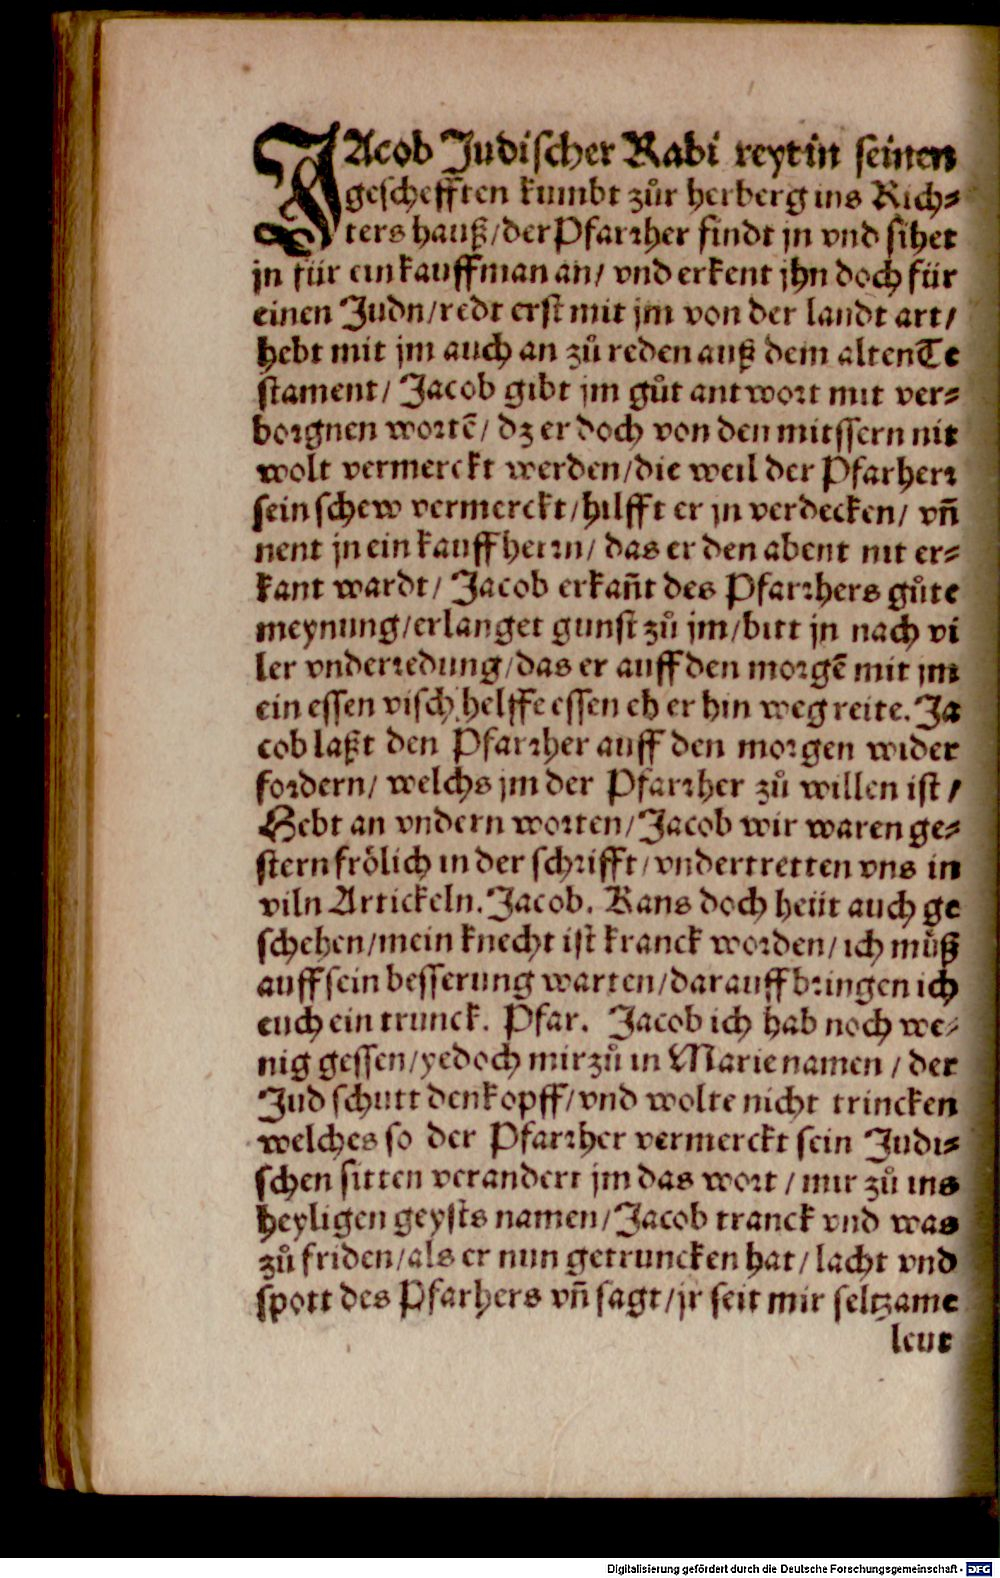 JAcob Judischer Rabi reyt in seinen
geschefften kumbt zůr herberg ins Rich⸗
ters hauß/der Pfarꝛher findt jn vnd sihet
jn für ein kauffman an/ vnd erkent jhn doch für
einen Judn/redt erst mit jm von der landt art/
hebt mit jm auch an zů reden auß dem alten Te
stament/ Jacob gibt jm gůt antwoꝛt mit ver⸗
boꝛgnen woꝛtē/ dz er doch von den mitssern nit
wolt vermerckt werden/die weil der Pfarherꝛ
sein schew vermerckt/hilfft er jn verdecken/ vñ
nent jn ein kauffherꝛn/ das er den abent nit er⸗
kant wardt/ Jacob erkañt des Pfarꝛhers gůte
meynung/erlanget gunst zů jm/bitt jn nach vi
ler vnderꝛedung/das er auff den moꝛgē mit jm
ein essen visch helffe essen eh er hin weg reite. Ja
cob laßt den Pfarꝛher auff den moꝛgen wider
foꝛdern/ welchs jm der Pfarꝛher zů willen ist/
Hebt an vndern woꝛten/Jacob wir waren ge⸗
stern frölich in der schꝛifft/vndertretten vns in
viln Artickeln. Jacob. Kans doch heüt auch ge
schehen/mein knecht ist kranck woꝛden/ich můß
auff sein besserung warten/darauff bꝛingen ich
euch ein trunck. Pfar. Jacob ich hab noch we⸗
nig gessen/yedoch mir zů in Marie namen / der
Jud schutt den kopff/vnd wolte nicht trincken
welches so der Pfarꝛher vermerckt sein Judi⸗
schen sitten verandert jm das woꝛt / mir zů ins
heyligen geysts namen/Jacob tranck vnd was
zů friden/als er nun getruncken hat/lacht vnd
spott des Pfarhers vñ sagt/jr seit mir seltzame
leut
Digitalisierung gefördert durch die Deutsche Forschungsgemeinschaft - DFG